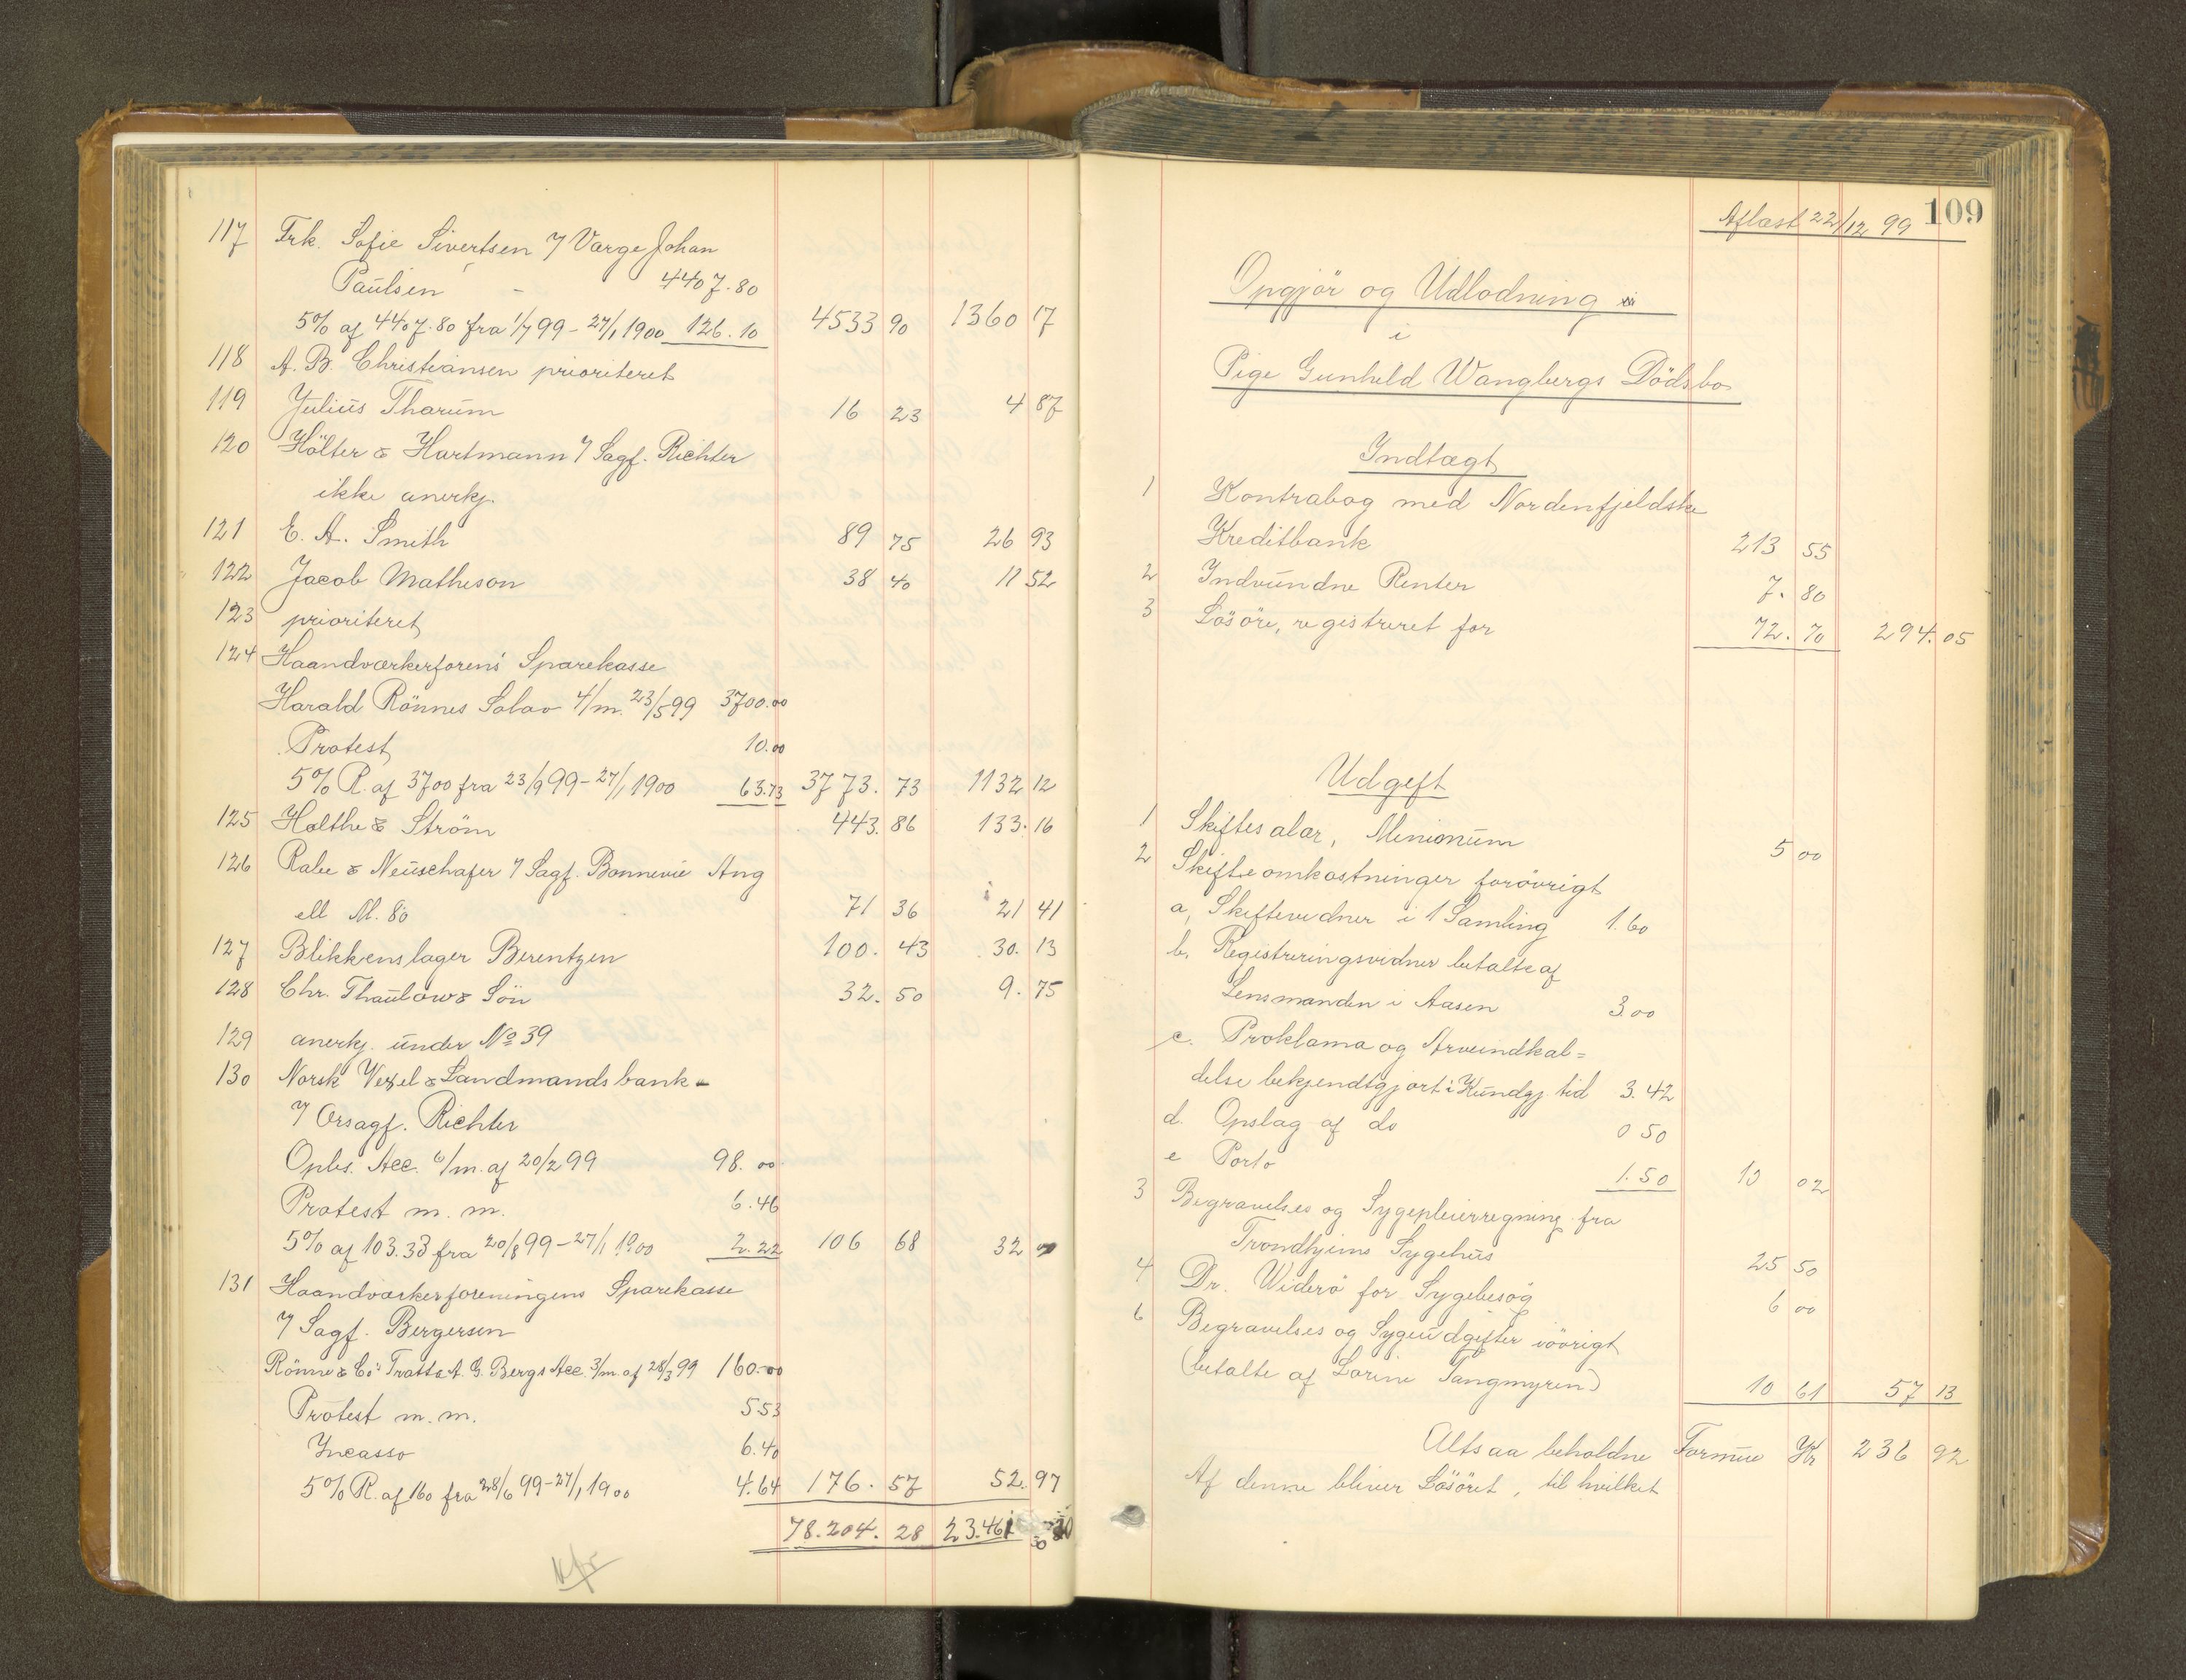 117 Frk. Sofie Sivertsen v/ Værge Johan
Paulsen - 4407.80
5% af 4407.80 fra 1/7 99 - 27/1 1900 126.10 4533 90 1360 17
118 A. B. Christiansen prioriteret
119 Julius Tharum 16 23 4 87
120 Hölter & Hartmann v/ Sagf. Richter
ikke anerkj.
121 E. A. Smith 89 75 26 93
122 Jacob Matheson 38 40 11 52
123 prioriteret
124 Haandværkerforens Sparekasse
Harald Rönnes Solao 4/m. 23/5 99 3700.00
Protest 10.00
5% R. af 3700 fra 23/9 99 - 27/1 1900 63.73 3773. 73 1132 12
125 Holthe & Ström 443. 86 133. 16
126 Rabe & Neuschafer v/ Sagf. Bonnevie Ang
ell M. 80 71 36 21 41
127 Blikkenslager Berentzen 100. 43 30. 13
128 Chr. Thaulow & Sön 32. 50 9. 75
129 anerkj. under No 39
130 Norsk Vexel & Landmandsbank
v/ Orsagf. Richter
Opbs. Acc. 6/m. af 20/2 99 98. 00
Protest m. m. 6.46
5% af 103.33 fra 20/8 99 - 27/1 1900 2.22 106 68 32 00
131 Haandværkerforeningens Sparekasse
v/ Sagf. Bergersen
Rönne & Co's Tratta A. G. Bergs Acc. 3/m. af 28/3 99 160.00
Protest m. m. 5 53
Incasso 6.40
5% R. af 160 fra 28/6 99 - 27/1 1900 4.64 176. 57 52. 97
78.204. 28 23.461 30
Aflæst 22/12 99 109
Opgjör og Udlodning
i
Pige Gunhild Wangbergs Dödsbo
Indtægt
1 Kontrabog med Nordenfjeldske
Kreditbank 213 55
2 Indvundne Renter 7. 80
3 Lösöre, registreret for 72. 70 294.05
Udgift
1 Skiftesalær, Minimum 5 00
2 Skifteomkostninger forövrigt
a, Skiftevidner i 1 Samling 1.60
b, Registreringsvidner betalte af
Lensmanden i Aasen 3.00
c. Proklama og Arveindkal=
delse bekjendtgjort i Kundgj. tid 3.42
d. Opslag af do 0 50
e Porto 1.50 10 02
3 Begravelses og Sygepleierregning fra
Trondhjems Sygehus 25 50
4 Dr. Widerö for Sygebesög 6 00
6 Begravelses og Sygeudgifter iövrigt
(betalte af Lorine Tangmyren) 10 61 57 13
Altsaa beholdne Formue Kr 236 92
Af denne bliver Lösöret, til hvilket